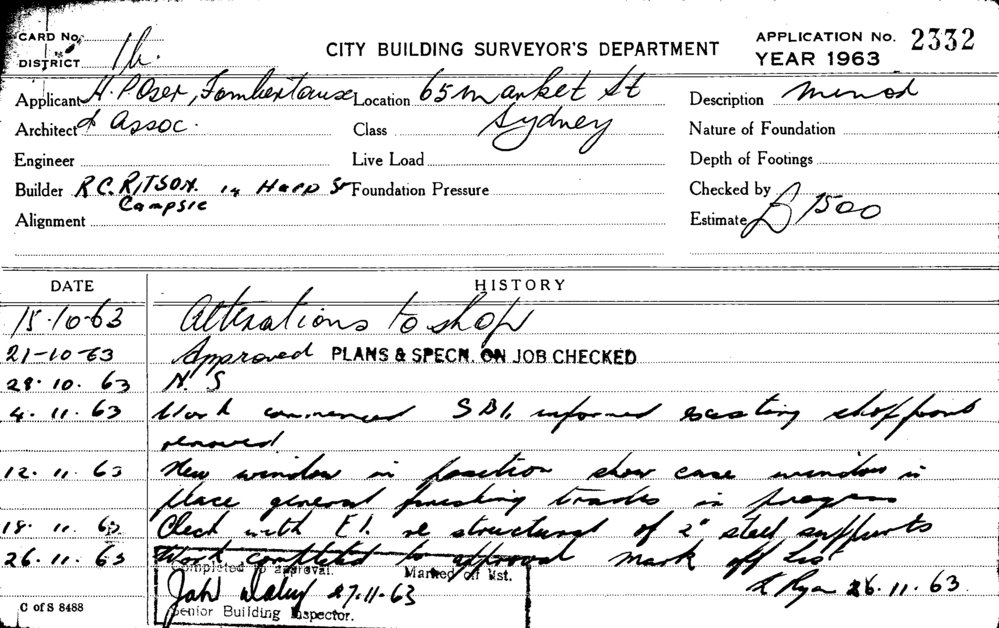 CARD No.
DISTRICT 1b.
CITY BUILDING SURVEYOR'S DEPARTMENT
APPLICATION No. 2332
YEAR 1963
Applicant H. P. Oser, Fombertaux Location 65 Market St Description Minor
Architect & Assoc. Class Sydney Nature of Foundation
Engineer Live Load Depth of Footings
Builder R.C. RITSON. Harp St Foundation Pressure Checked by
Campsie
Alignment Estimate £1500
DATE HISTORY
15-10-63 Alterations to shop
21-10-63 Approved PLANS & SPECN. ON JOB CHECKED
28.10.63 N.S
4.11.63 Work commenced S.B.I. informed existing shopfront
removed
12.11.63 New window in position show case window in
place general finishing trades in progress
18.11.63 Check with E.I. re structural of 2" steel supports
26.11.63 Work completed to approval mark off list
Completed to approval. Marked off list.
27-11-63
Senior Building Inspector.
Ryan 26.11.63
C of S 8488